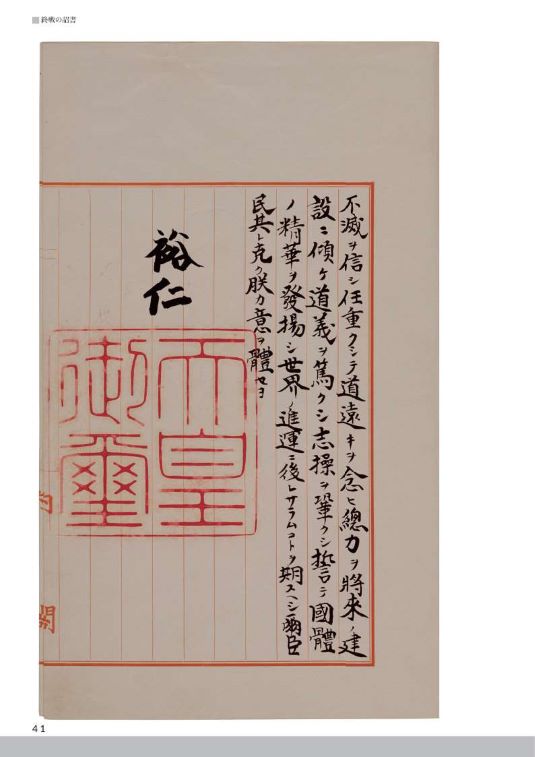 終戦の詔書
不滅ヲ信シ任重クシテ道遠キヲ念ヒ總力ヲ將來ノ建
設ニ傾ケ道義ヲ篤クシ志操ヲ鞏クシ誓テ國體
ノ精華ヲ發揚シ世界ノ進運ニ後レサラムコトヲ期スヘシ爾臣
民其レ克ク朕カ意ヲ體セヨ
裕仁
天皇
御璽
閣
41